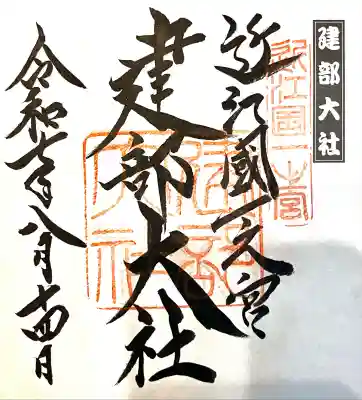 建部大社
近江國一之宮
近江國一之宮
建部大社
建部大社
令和七年八月十四日